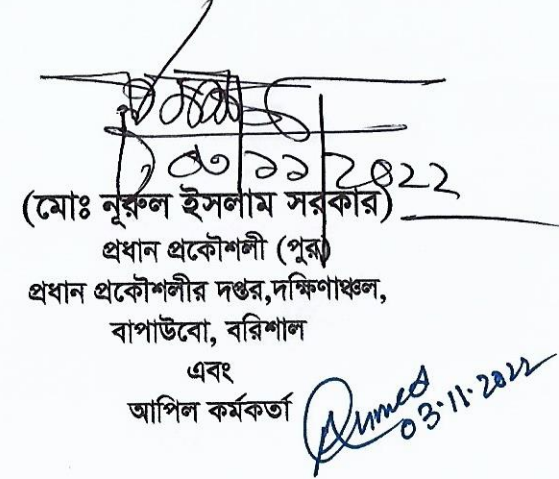 ০৩|১১|2022
(মোঃ নূরুল ইসলাম সরকার)
প্রধান প্রকৌশলী (পুর)
প্রধান প্রকৌশলীর দপ্তর,দক্ষিণাঞ্চল,
বাপাউবো, বরিশাল
এবং
আপিল কর্মকর্তা
Ahmed
03.11.2022